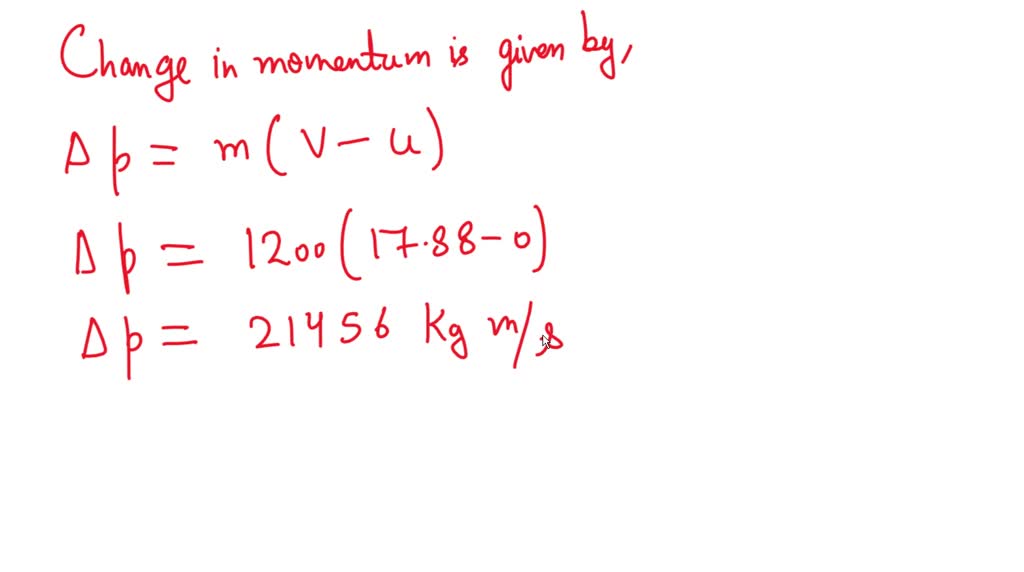 Change in momentum is given by,
Δp = m(v-u)
Δp = 1200(17.88-0)
Δp = 21456 Kg m/s